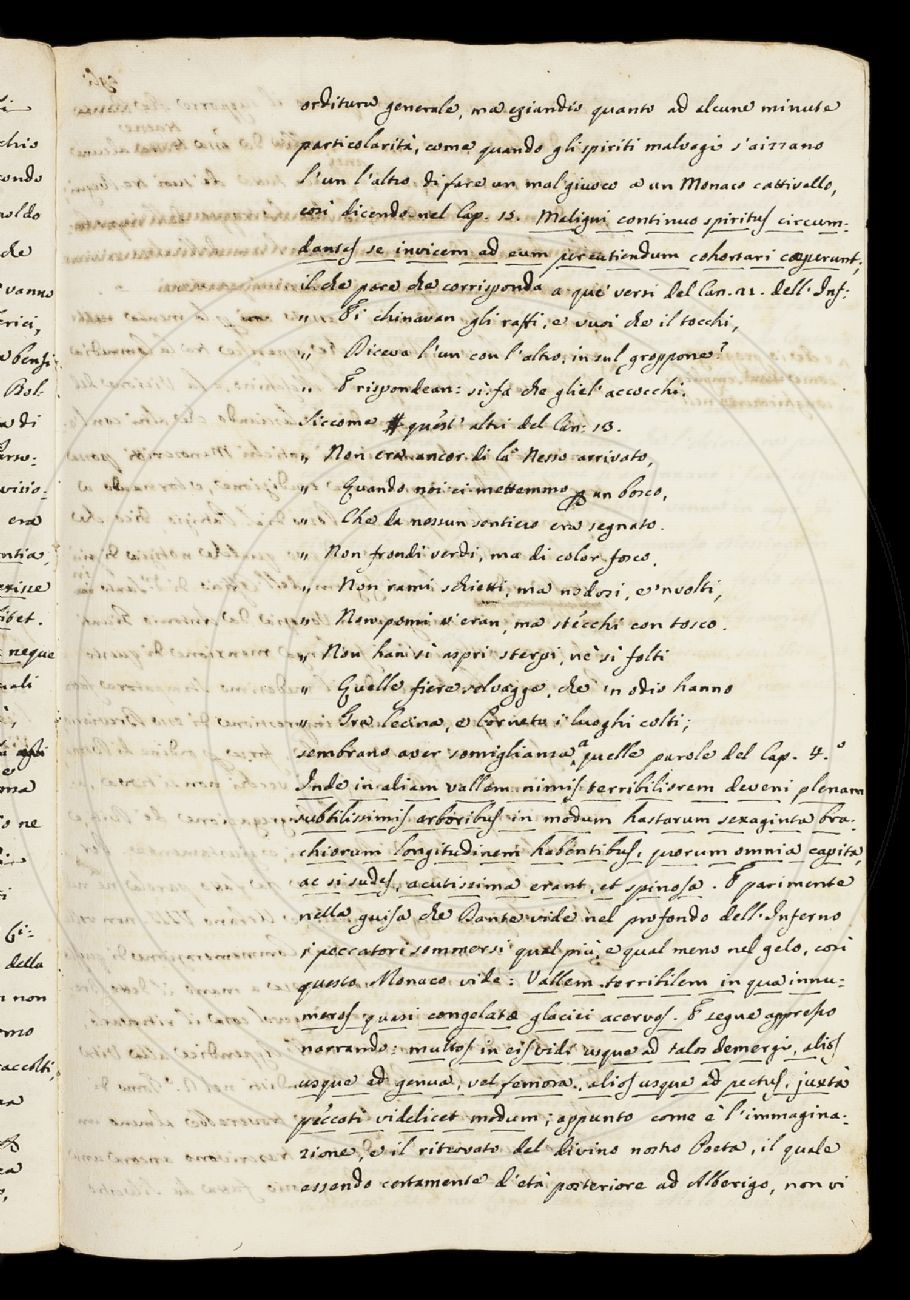 orditura generale, ma eziandio quanto ad alcune minute
particolarità, come quando gli spiriti malvagi s'aizzano
l'un l'altro di fare un mal giuoco a un Monaco cattivello,
così dicendo nel Cap. 15. Maligni continuo spiritus circum-
dantes se invicem ad eum percutiendum cohortari cœperunt;
il che pare che corrisponda a que' versi del Can. 21. dell'Inf:
„ Ei chinavan gli raffi, e vuoi che il tocchi,
„ Diceva l'un con l'altro, in sul groppone?
„ E rispondean: sì fa che gliel' accocchi.
Siccome quest' altri del Can: 13.
„ Non era ancor di là Nesso arrivato,
„ Quando noi ci mettemmo p un bosco,
„ Che da nessun sentiero era segnato.
„ Non frondi verdi, ma di color fosco,
„ Non rami schietti, ma nodosi, e 'nvolti,
„ Non pomi v' eran, ma stecchi con tosco.
„ Non han sì aspri sterpi, nè sì folti
„ Quelle fiere selvagge, che 'n odio hanno
„ Tra Cecina, e Corneto i luoghi colti;
sembrano aver somiglianza a quelle parole del Cap. 4.º
Inde in aliam vallem nimis terribiliorem deveni plenam
subtilissimis arboribus in modum hastarum sexaginta bra-
chiorum longitudinem habentibus, quorum omnia capita,
ac si sudes, acutissima erant, et spinosa. E parimente
nella guisa che Dante vide nel profondo dell'Inferno
i peccatori sommersi qual più, e qual meno nel gelo, così
questo Monaco vide: Vallem terribilem in qua innu-
meros quasi congelatæ glaciei acervos. E segue appresso
narrando: multos in eis vidi usque ad talos demergi, alios
usque ad genua, vel femora, alios usque ad pectus, juxtà
peccati videlicet modum; appunto come è l'immagina-
zione, e il ritrovato del divino nostro Poeta, il quale
essendo certamente d'età posteriore ad Alberigo, non vi